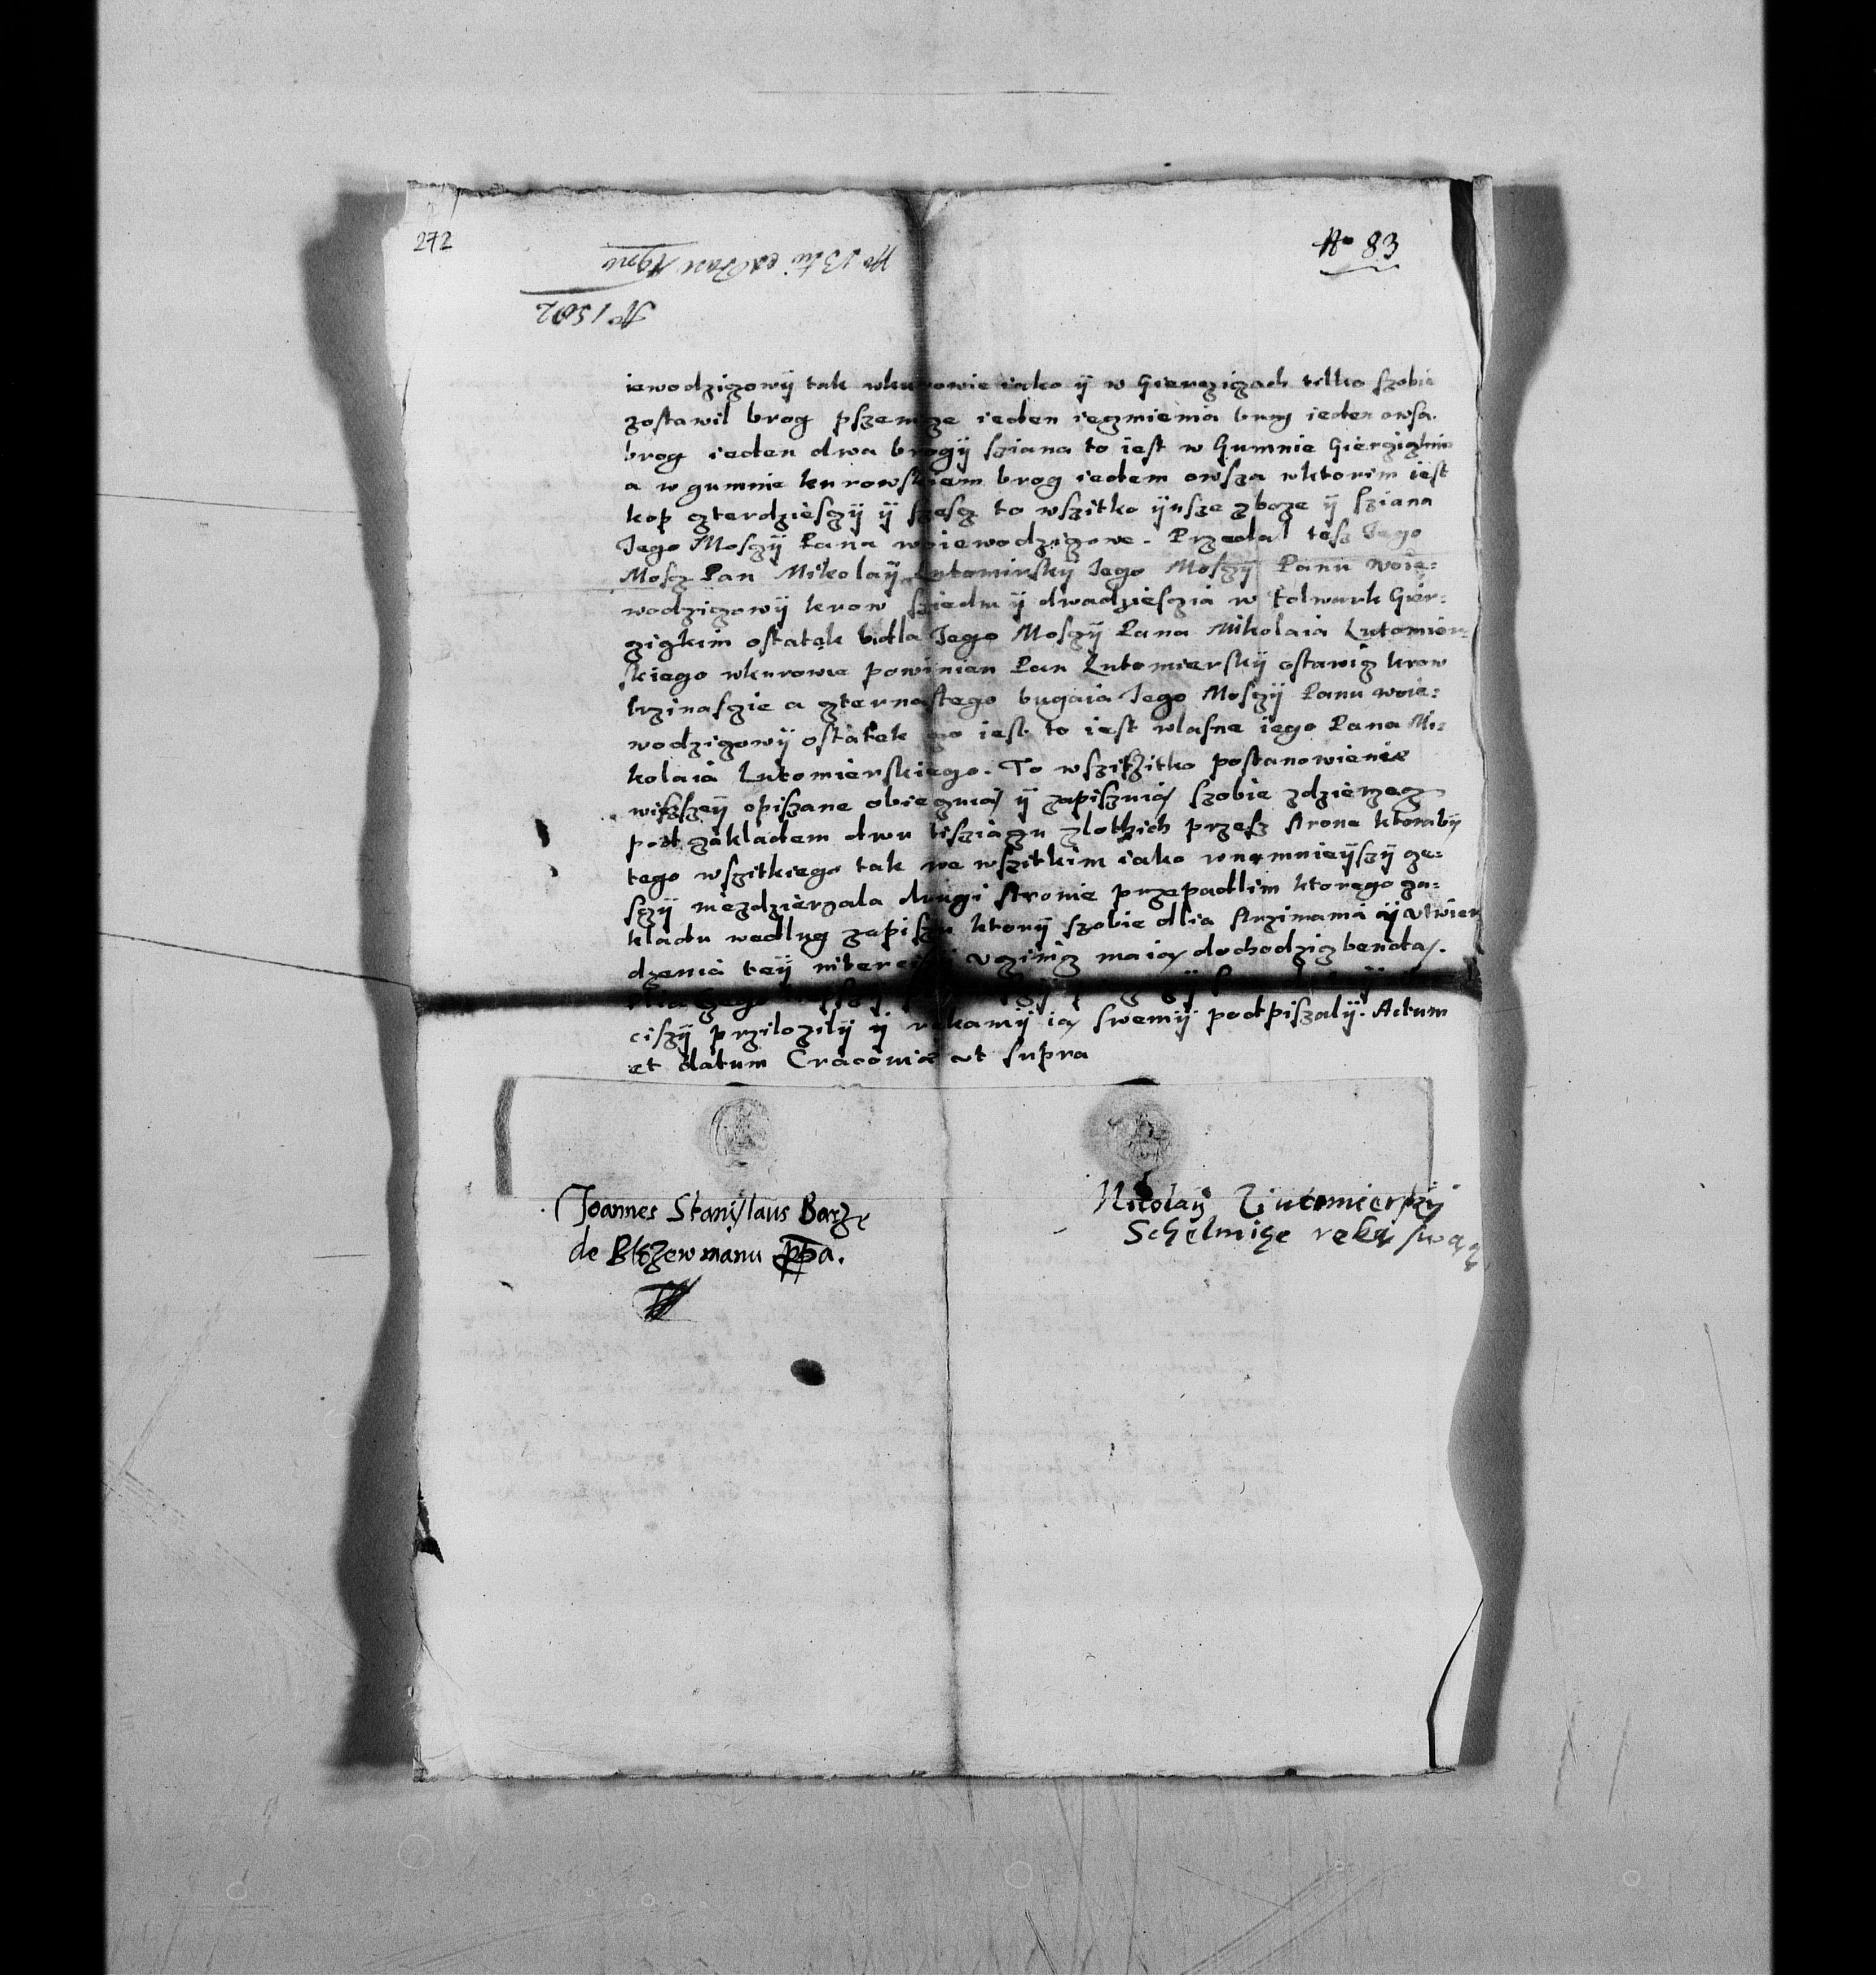 272
No 83
Ao 1502
iewodzizowÿ tak wkurowie iako ÿ w Gierzizach tilko szobie
zostawil brog pszenize ieden iezmienia brog ieden owsa.
brog ieden dwa brogÿ sziana to iest w Gumnie
a w gumnie kurowskiem brog iedem owsza wktorim iest
kop czterdziesczÿ ÿ szescz to wszitko ÿnsze zboze ÿ sziana
Jego Mosczÿ Pana woiewodzizowe. Przedal tesz Jego
Moscz Pan Mikolaÿ Lutomirskÿ Jego Mosczÿ Panu woie=
wodzizowÿ krow sziedm ÿ dwadziesczia w folwark Gier=
zizkim ostatek bidla Jego Mosczÿ Pana Mikolaia Lutomier=
skiego wkurowie powinien Pan Lutomierskÿ ostawiz krow
trzinasczie a czternastego bugaia Jego Mosczÿ Panu woie=
wodzizowÿ ostatek zo iest to iest wlasne iego Pana Mi=
kolaia Lutomierskiego. To wszitszitko postanowienie
wiszszeÿ opiszane obieczuią ÿ zapiszuią szobie zdzierzez
pod zakladem dwu tisziączu zlothich przesz strone ktorabÿ
tego wszitkiego tak we wszitkim iako wnamnieÿszÿ cze=
szÿ niezdzierzala drugi stronie przepadlim ktorego za=
kladu wedlug zapiszu ktorÿ szobie dlia strzimania ÿ utwier
dzenia teÿ uczinicz maią dochodzicz bendą.
ciszÿ prziloziliÿ ÿ rekamÿ ią swemÿ podpiszalÿ. Actum
et datum Cracoviæ ut supra
Joannes Stanislaus Barze
de manu ppa.
Nicolaÿ Liutomierskÿ
ręką swąą